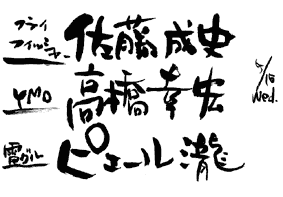 フライフィッシャー 佐藤成史
YMO 高橋幸宏
電グル ピエール瀧
5/18 Wed.